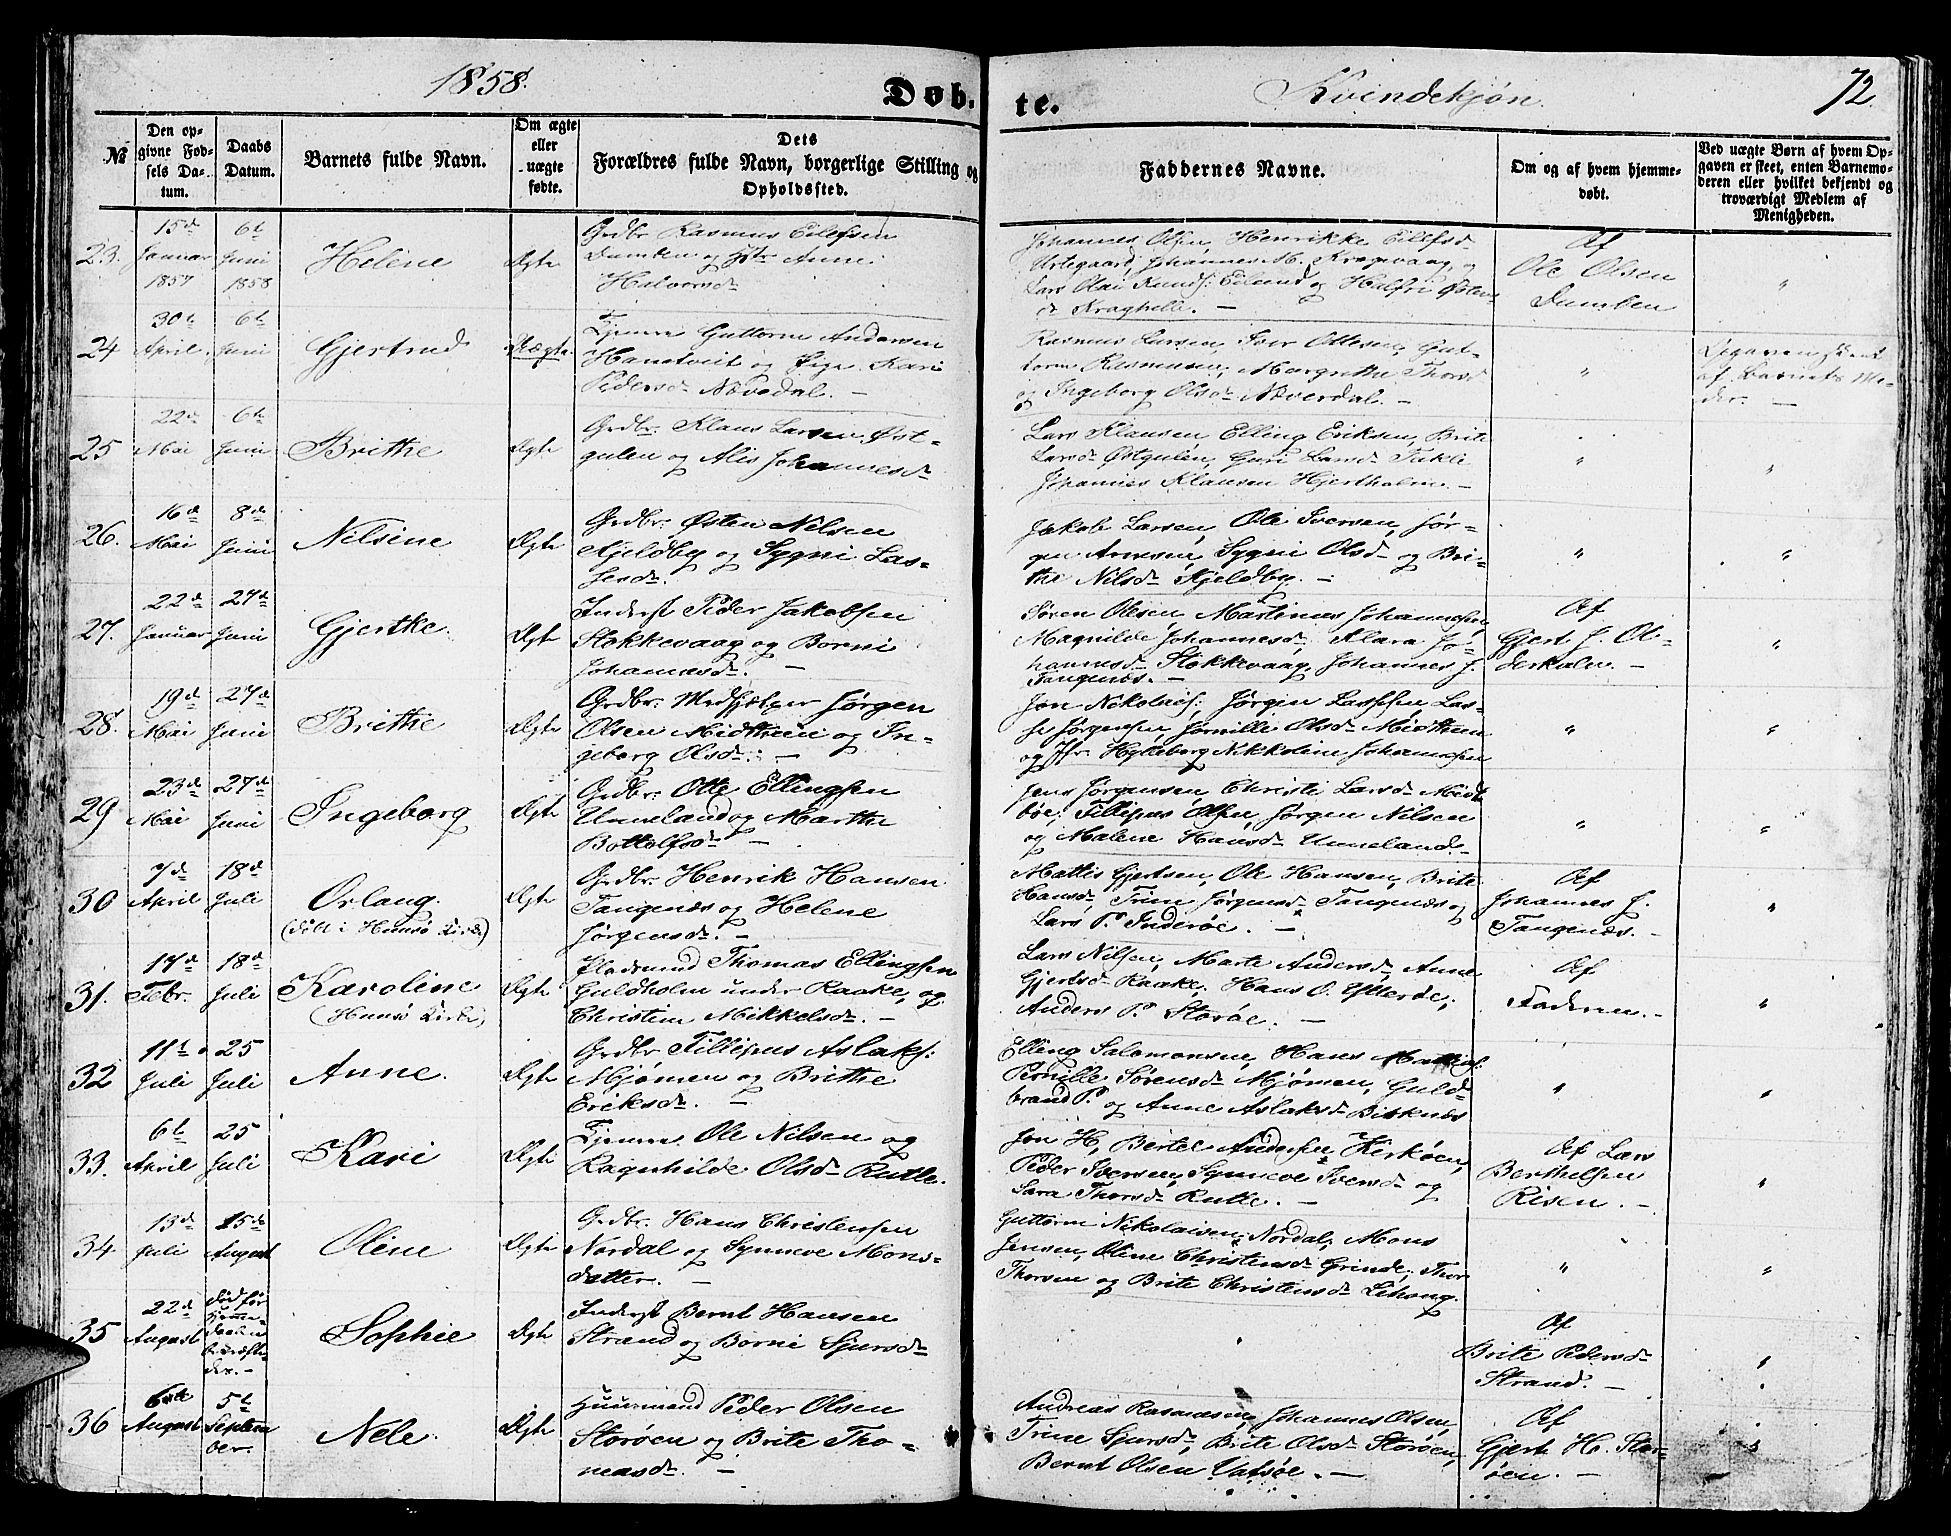 1858.
Døb-
te.
Kvindekjøn.
72
№
Den op-
givne Fød-
sels Da-
tum.
Daabs
Datum.
Barnets fulde Navn.
Om ægte
eller
uægte
fødte.
Dets
Forældres fulde Navn, borgerlige Stilling og
Opholdssted.
Faddernes Navne.
Om og af hvem hjemme-
døbt.
Ved uægte Børn af hvem Op-
gaven er skeet, enten Barnemo-
deren eller hvilket bekjendt og
troværdigt Medlem af
Menigheden.
23.
15de
Januar
1857
6te
Juni
1858
Helene
Ægte
Grdbr Rasmus Eilefsen
Dumben og Hr Anne
Halvorsdr
Johannes Olsen, Henrikke Eilefsdr
Urtegaard, Johannes M. Kragevaag, og
Lars Olai Eilund og Halfri
Kraghelle. —
Af
Ole Olsen
Dumben
"
24
30te
April.
6te
Juni
Gjertrud
Uægte.
Tjener Guttorm Andersen
Hanetveit og Pige Kari
Pedersdr Nøvedal. —
Rasmus Larsen, Iver Ottesen, Gut-
torm Rasmusen, Margrethe Thorsdr
og Ingeborg Olsdr Nøverdal. —
"
Opgaven skeet
af Barnets Mo-
der. —
25
22de
Mai
6te
Juni
Brithe
Ægte
Grdbr. Klaus Larsen Øst-
gulen og Alis Johannesdr
Lars Klausen, Elling Eriksen, Brite
Larsdr Østgulen, Guri Larsdr Tukle
Johannes Klausen Hjertholm. —
"
"
26.
16de
Mai
8de
Juni
Nilsine
Ægte
Grdbr. Østen Nilsen
Kjeldby og Sygni Las-
sesdr.
Jakob Larsen, Ole Iversen, Jør-
gen Arnesen, Sygni Olsdr og Bri-
the Nilsdr Kjeldby. —
"
"
27.
22de
Januar
27de
Juni
Gjertke.
Ægte
Inderst Peder Jakobsen
Stokkevaag og Borni
Johannesdr. —
Søren Olsen, Martinus Johannessen
Magnilde Johannesdr, Klara Jo-
hannesdr Stokkevaag, Johannes J.
Tangenæs. —
Af
Gjert J. Ol-
derkalv. —
"
28.
19de
Mai
27de
Juni
Brithe
Ægte
Grdbr. Medhjælper Jørgen
Olsen Midthun og In-
geborg Olsdr. —
Jon Nikolais: Jørgen Lassesen, Las-
se Jørgensen, Jørnille Olsdr Midthun
og Jfr. Hylleborg Nikkoline Johannesen
"
"
29
23de
Mai
27de
Juni
Ingeborg
Ægte
Grdbr. Otte Ellingsen
Unneland og Marthe
Bottolfsdr —
Jens Jørgensen, Christi Larsdr Midt-
bøe; Fillipus Olsen, Jørgen Nilsen
og Malene Hansdr Unneland. —
"
"
30
7de
April
18de
Juli
Orlaug.
(døbt i Husø Kirke)
Ægte
Grdbr. Henrik Hansen
Tangenæs og Helene
Jørgensdr. —
Mattis Gjertsen, Ole Hansen, Brite
Hansdr, Trine Jørgensdr Tangenæs og
Lars P. Inderøe. —
Af
Johannes J.
Tangenæs. —
"
31.
17de
Febr.
18de
Juli
Karoline
(Husø Kirke)
Ægte
Pladsmand Thomas Ellingsen
Guldholm under Kaake, og
Christine Mikkelsdr. —
Lars Nilsen, Marte Andersdr, Anne
Gjertsdr Kaake; Hans O. Ytterøe;
Anders P. Storøe. —
Af
Faderen. —
"
32
11te
Juli
25
Juli
Anne.
Ægte
Grdbr Fillipus Aslaks:
Mjømen og Brithe
Eriksdr. —
Elling Salomonsen, Hans Mathias:
Pernille Sørensdr Mjømen, Guld-
brand P. og Anne Aslaksdr Birknæs
"
"
33.
6te
April
25
Juli
Kari
Ægte
Tjener Ole Nilsen og
Ragnhilde Olsdr Rutle.
Jon H, Bertel Andersen Kirkøen,
Peder Iversen, Synneve Iversdr og
Sara Thorsdr Rutle. —
Af Lars
Berthelsen
Risen. —
"
34
13de
Juli
15de
August
Oline
Ægte
Grdbr. Hans Christensen
Nordal og Synneve Mons-
datter. —
Guttorm Nikolaisen Nordal; Mons
Jensen, Oline Christensdr Grinde, Thor
Thorsen og Brite Christensdr Lihaug.
"
"
35
22de
August
Død før
Hjemme-
daaben
bekræfte-
des. —
Sophie
Ægte
Inderst Bernt Hansen
Strand og Borni Sjursdr
"
Af
Brite Pedersdr
Strand. —
"
36
6te
August
5te
Septem
ber.
Nele.
Ægte
Huusmand Peder Olsen
Storøen og Brite Tho-
measdr. —
Andreas Rasmusen, Johannes Olsen,
Trine Sjursdr, Brite Olsdr Storøen,
Bernt Olsen Vatsøe. —
Af
Gjert H. Stor-
øen. —
"